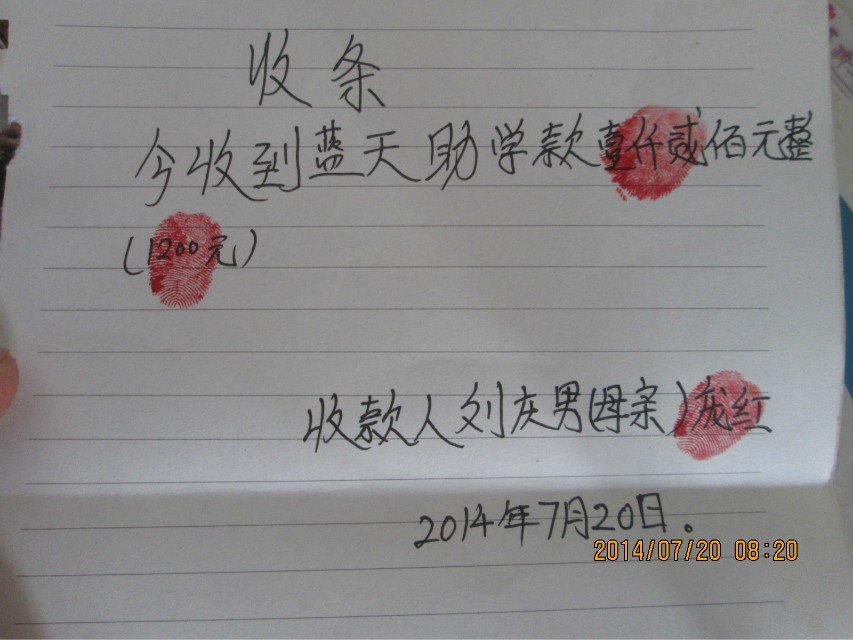 收条
今收到蓝天助学款壹仟贰佰元整
(1200元)
收款人刘灰男(母亲)庞红
2014年7月20日。
2014/07/20 08:20